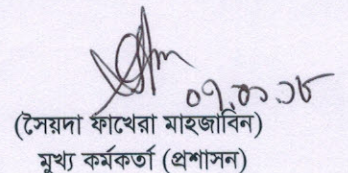 ০৭.০১.১৮
(সৈয়দা ফাখেরা মাহজাবিন)
মুখ্য কর্মকর্তা (প্রশাসন)